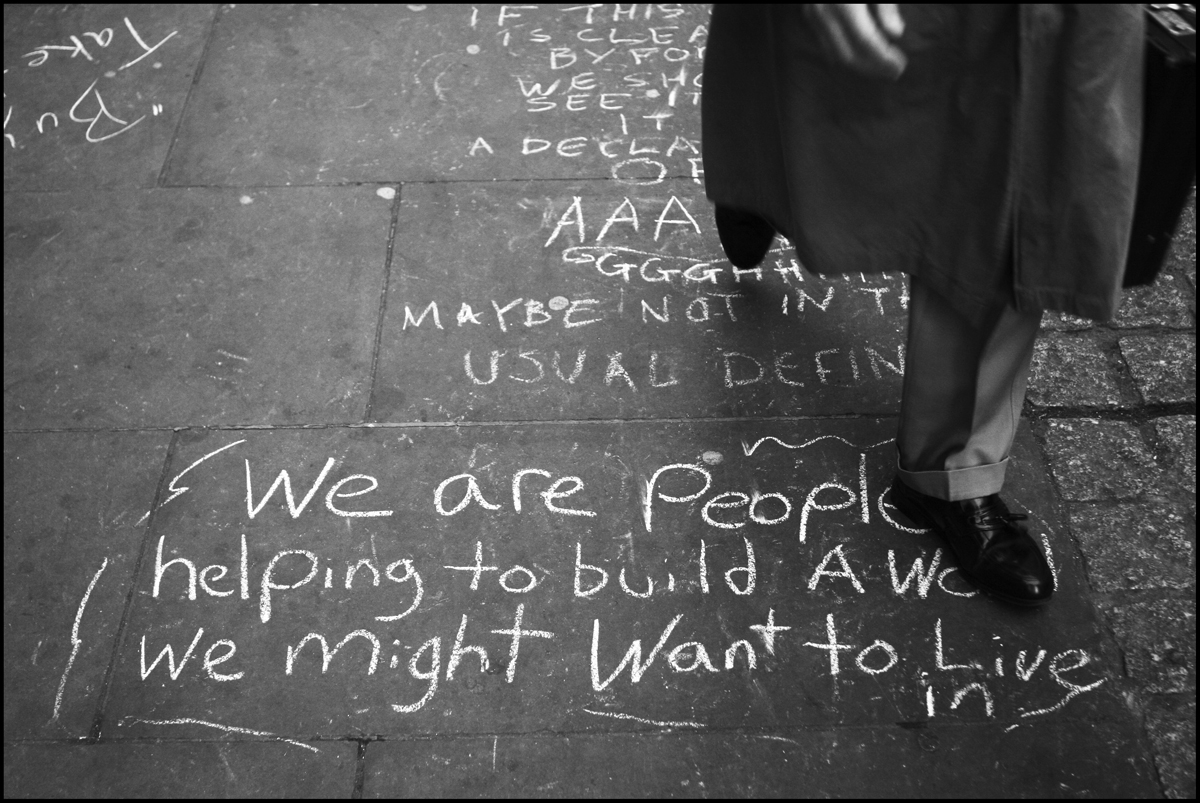 Take
"Bu
IF THIS
IS CLEA
BY FOR
WE SHO
SEE IT
IT
A DECLA
OF
AAA
GGGGHH
MAYBE NOT IN TH
USUAL DEFIN
We are People
helping to build A Wo d
we might Want to Live
in